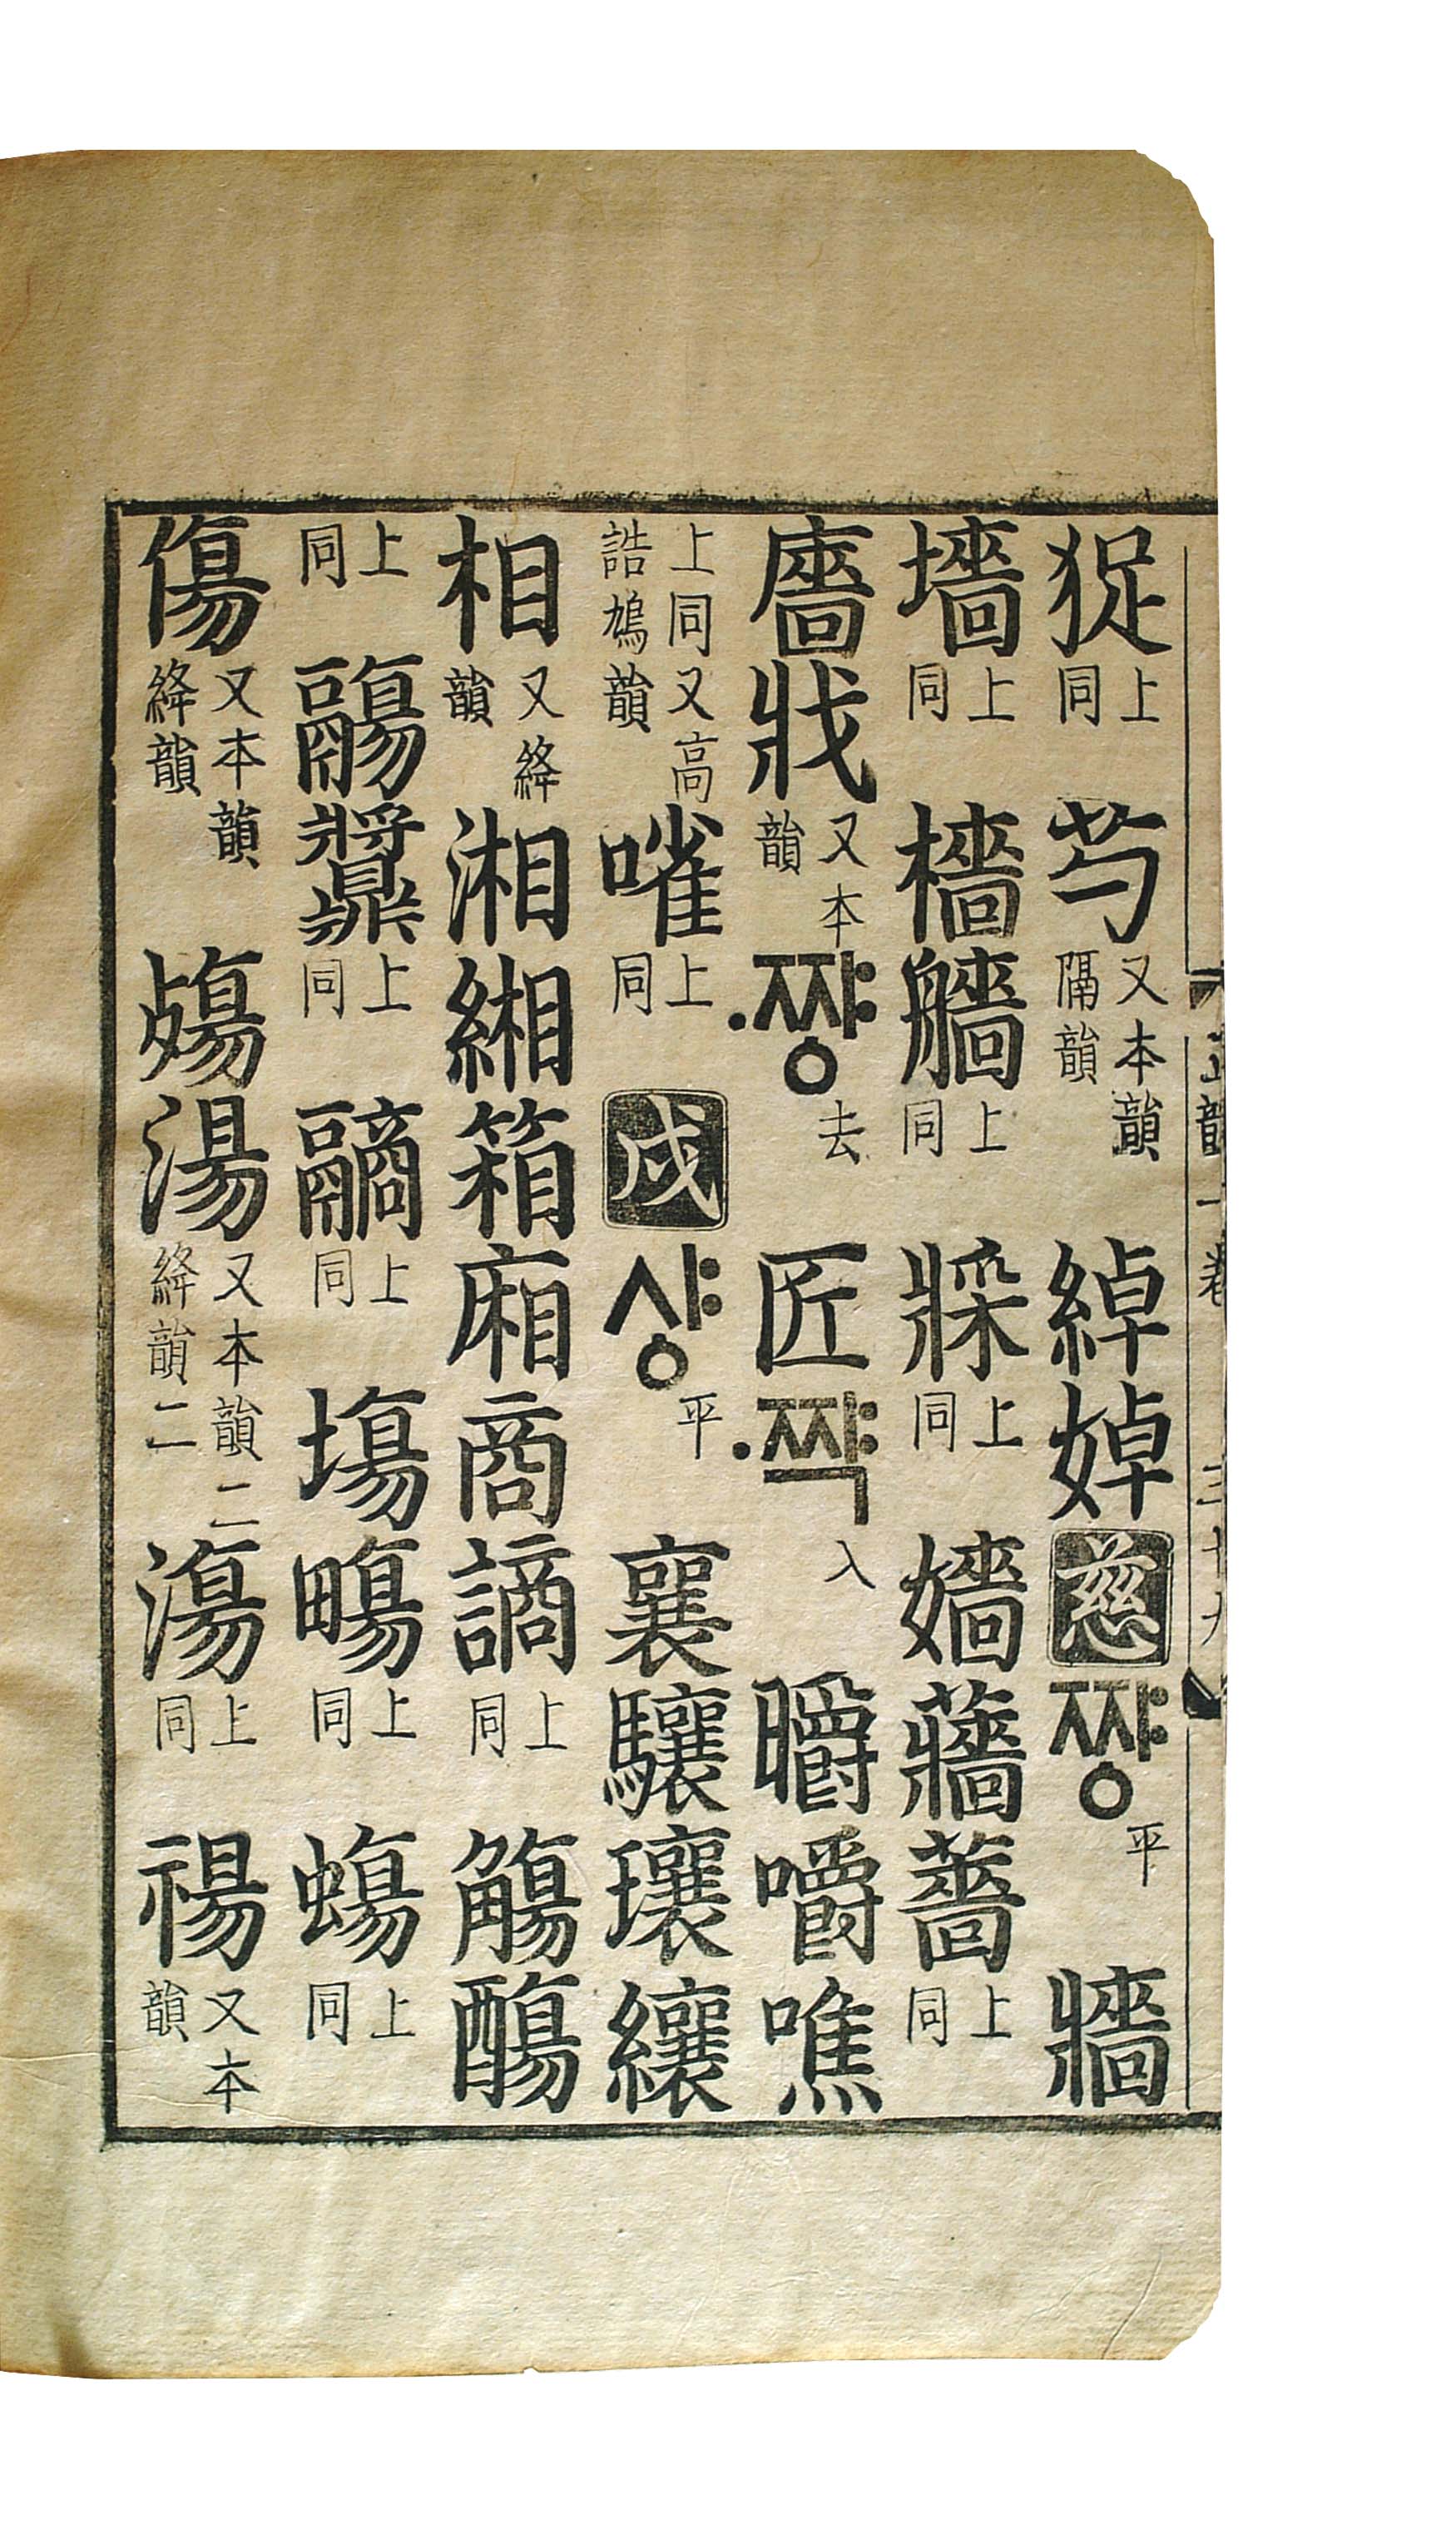 上同芍又本韻隔韻綽婥慈쨩平牆
墻上同檣艢上同上同嬙蘠薔上同
廧戕又本韻·쨩去匠·쨕入嚼噍
上同又高誥鳩韻嗺上同戌샹平襄驤瓖纕
相又絳韻湘緗箱廂商謪上同觴
上同䵼上同上同塲上同上同
傷又本韻絳韻湯又本韻二絳韻二上同禓又本韻